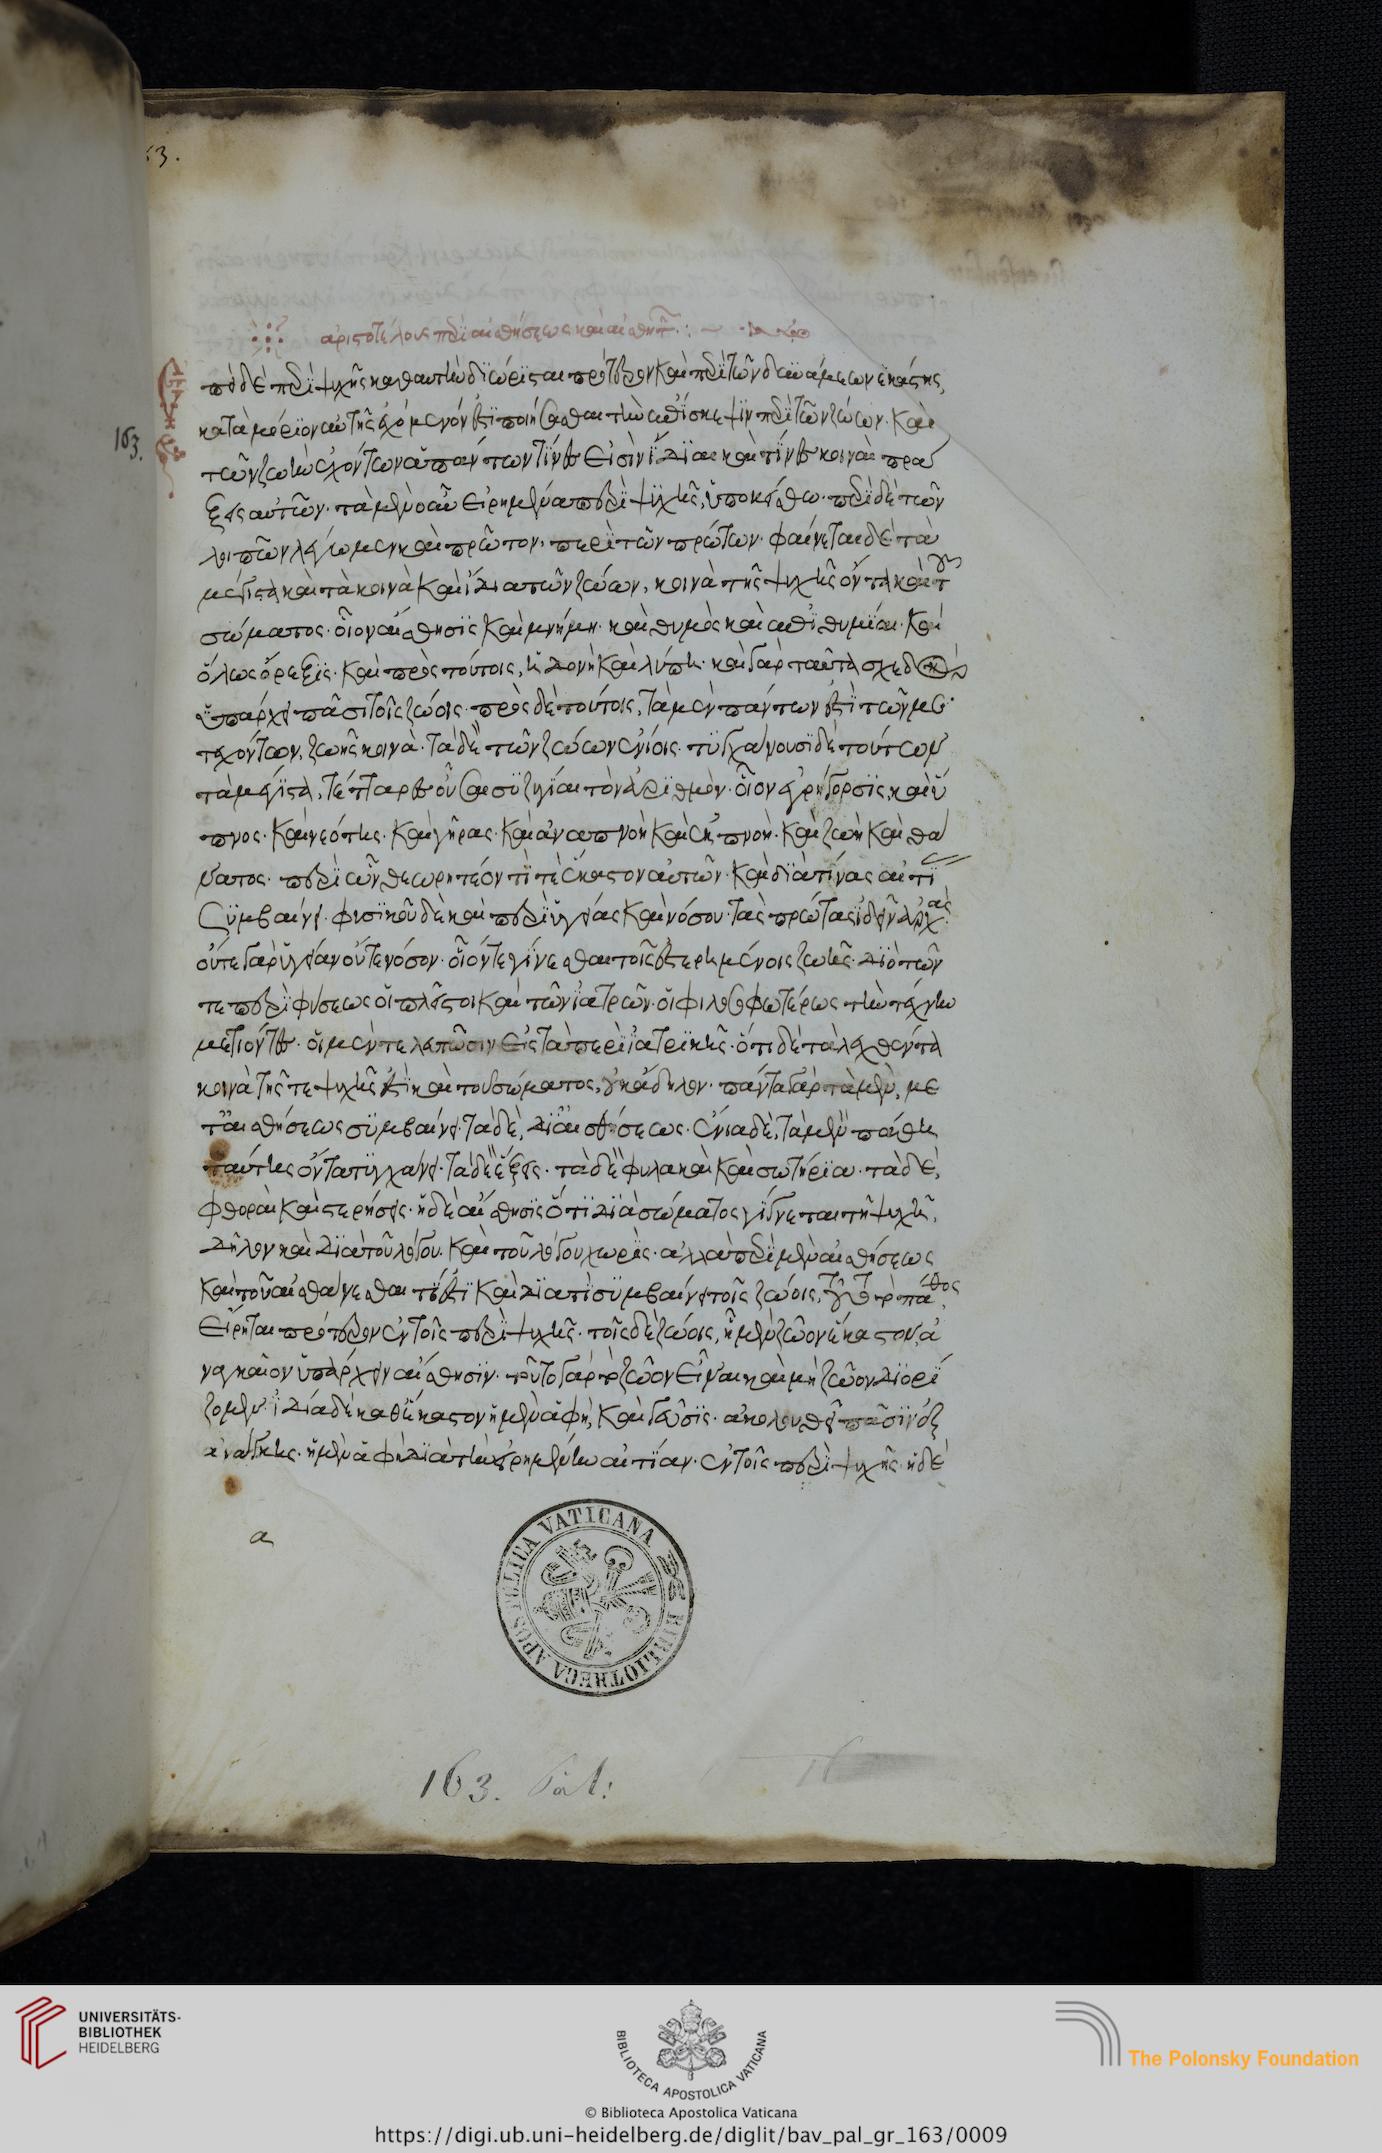 63.
ἀριστοτέλους περὶ αἰσθήσεως καὶ αἰσθητῶν
Ἐπεὶ δὲ περὶ ψυχῆς καθ' αὑτὴν διώρισται πρότερον καὶ περὶ τῶν δυνάμεων ἑκάστης
κατὰ μόριον αὐτῆς ἐχόμενόν ἐστι ποιήσασθαι τὴν ἐπίσκεψιν περὶ τῶν ζώων. καὶ
τῶν ζωὴν ἐχόντων ἁπάντων τίνες εἰσὶν ἴδιαι καὶ τίνες κοιναὶ πρά
ξεις αὐτῶν. τὰ μὲν οὖν εἰρημένα περὶ ψυχῆς, ὑποκείσθω. περὶ δὲ τῶν
λοιπῶν λέγωμεν καὶ πρῶτον, περὶ τῶν πρώτων. φαίνεται δὲ τὰ
μέγιστα καὶ τὰ κοινὰ καὶ ἴδια τῶν ζώων, κοινὰ τῆς ψυχῆς ὄντα καὶ τοῦ
σώματος. οἷον αἴσθησις καὶ μνήμη. καὶ θυμὸς καὶ ἐπιθυμία. καὶ
ὅλως ὄρεξις. καὶ πρὸς τούτοις, ἡδονὴ καὶ λύπη. καὶ γὰρ ταῦτα σχεδὸν
ὑπάρχει πᾶσι τοῖς ζώοις. πρὸς δὲ τούτοις, τὰ μὲν πάντων ἐστὶ τῶν με
τεχόντων, ζωῆς κοινά. τὰ δὲ τῶν ζώων ἐνίοις. τυγχάνουσι δὲ τούτων
τὰ μέγιστα, τέτταρες οὖσαι συζυγίαι τὸν ἀριθμὸν. οἷον ἐγρήγορσις, καὶ ὕ
πνος. καὶ νεότης. καὶ γῆρας. καὶ ἀναπνοὴ καὶ ἐκπνοή. καὶ ζωὴ καὶ θά
νατος. περὶ ὧν θεωρητέον τί τε ἕκαστον αὐτῶν. καὶ διὰ τίνας αἰτί
ας
συμβαίνει. φυσικοῦ δὲ καὶ περὶ ὑγείας καὶ νόσου. τὰς πρώτας ἰδεῖν ἀρχάς.
οὔτε γὰρ ὑγείαν οὔτε νόσον. οἷόν τε γίνεσθαι τοῖς ἐστερημένοις ζωῆς. διὸ τῶν
τε περὶ φύσεως οἱ πλεῖστοι καὶ τῶν ἰατρῶν. οἱ φιλοσοφωτέρως τὴν τέχνην
μετιόντες. οἱ μὲν τελευτῶσιν εἰς τὰ περὶ ἰατρικῆς. ὅτι δὲ τὰ λεχθέντα
κοινὰ τῆς τε ψυχῆς ἐστὶ καὶ τοῦ σώματος, οὐκ ἄδηλον. πάντα γὰρ τὰ μὲν, με
τ' αἰσθήσεως συμβαίνει. τὰ δὲ, δι' αἰσθήσεως. ἔνια δὲ, τὰ μὲν πάθη
ταύτης ὄντα τυγχάνει. τὰ δὲ ἕξεις. τὰ δὲ φυλακαὶ καὶ σωτηρίαι. τὰ δὲ,
φθοραὶ καὶ στερήσεις. ἡ δὲ αἴσθησις ὅτι διὰ σώματος γίγνεται τῇ ψυχῇ,
δῆλον καὶ διὰ τοῦ λόγου. καὶ τοῦ λόγου χωρίς. ἀλλὰ περὶ μὲν αἰσθήσεως
καὶ τοῦ αἰσθάνεσθαι τί ἐστι καὶ διὰ τί συμβαίνει τοῖς ζώοις, τοῦτο τὸ πάθος,
εἴρηται πρότερον ἐν τοῖς περὶ ψυχῆς. τοῖς δὲ ζώοις, ᾗ μὲν ζῶον ἕκαστον, ἀ
ναγκαῖον ὑπάρχειν αἴσθησιν. τούτῳ γὰρ τὸ ζῶον εἶναι καὶ μὴ ζῶον διορί
ζομεν. ἰδίᾳ δὲ καθ' ἕκαστον ἡ μὲν ἁφὴ, καὶ γεῦσις. ἀκολουθεῖ πᾶσιν ἐξ
ἀνάγκης. ἡ μὲν ἁφὴ διὰ τὴν εἰρημένην αἰτίαν. ἐν τοῖς περὶ ψυχῆς. ἡ δὲ
163.
α
BIBLIOTHECA APOSTOLICA VATICANA
163. Pal:
UNIVERSITÄTS-
BIBLIOTHEK
HEIDELBERG
BIBLIOTECA APOSTOLICA VATICANA
The Polonsky Foundation
© Biblioteca Apostolica Vaticana
https://digi.ub.uni-heidelberg.de/diglit/bav_pal_gr_163/0009